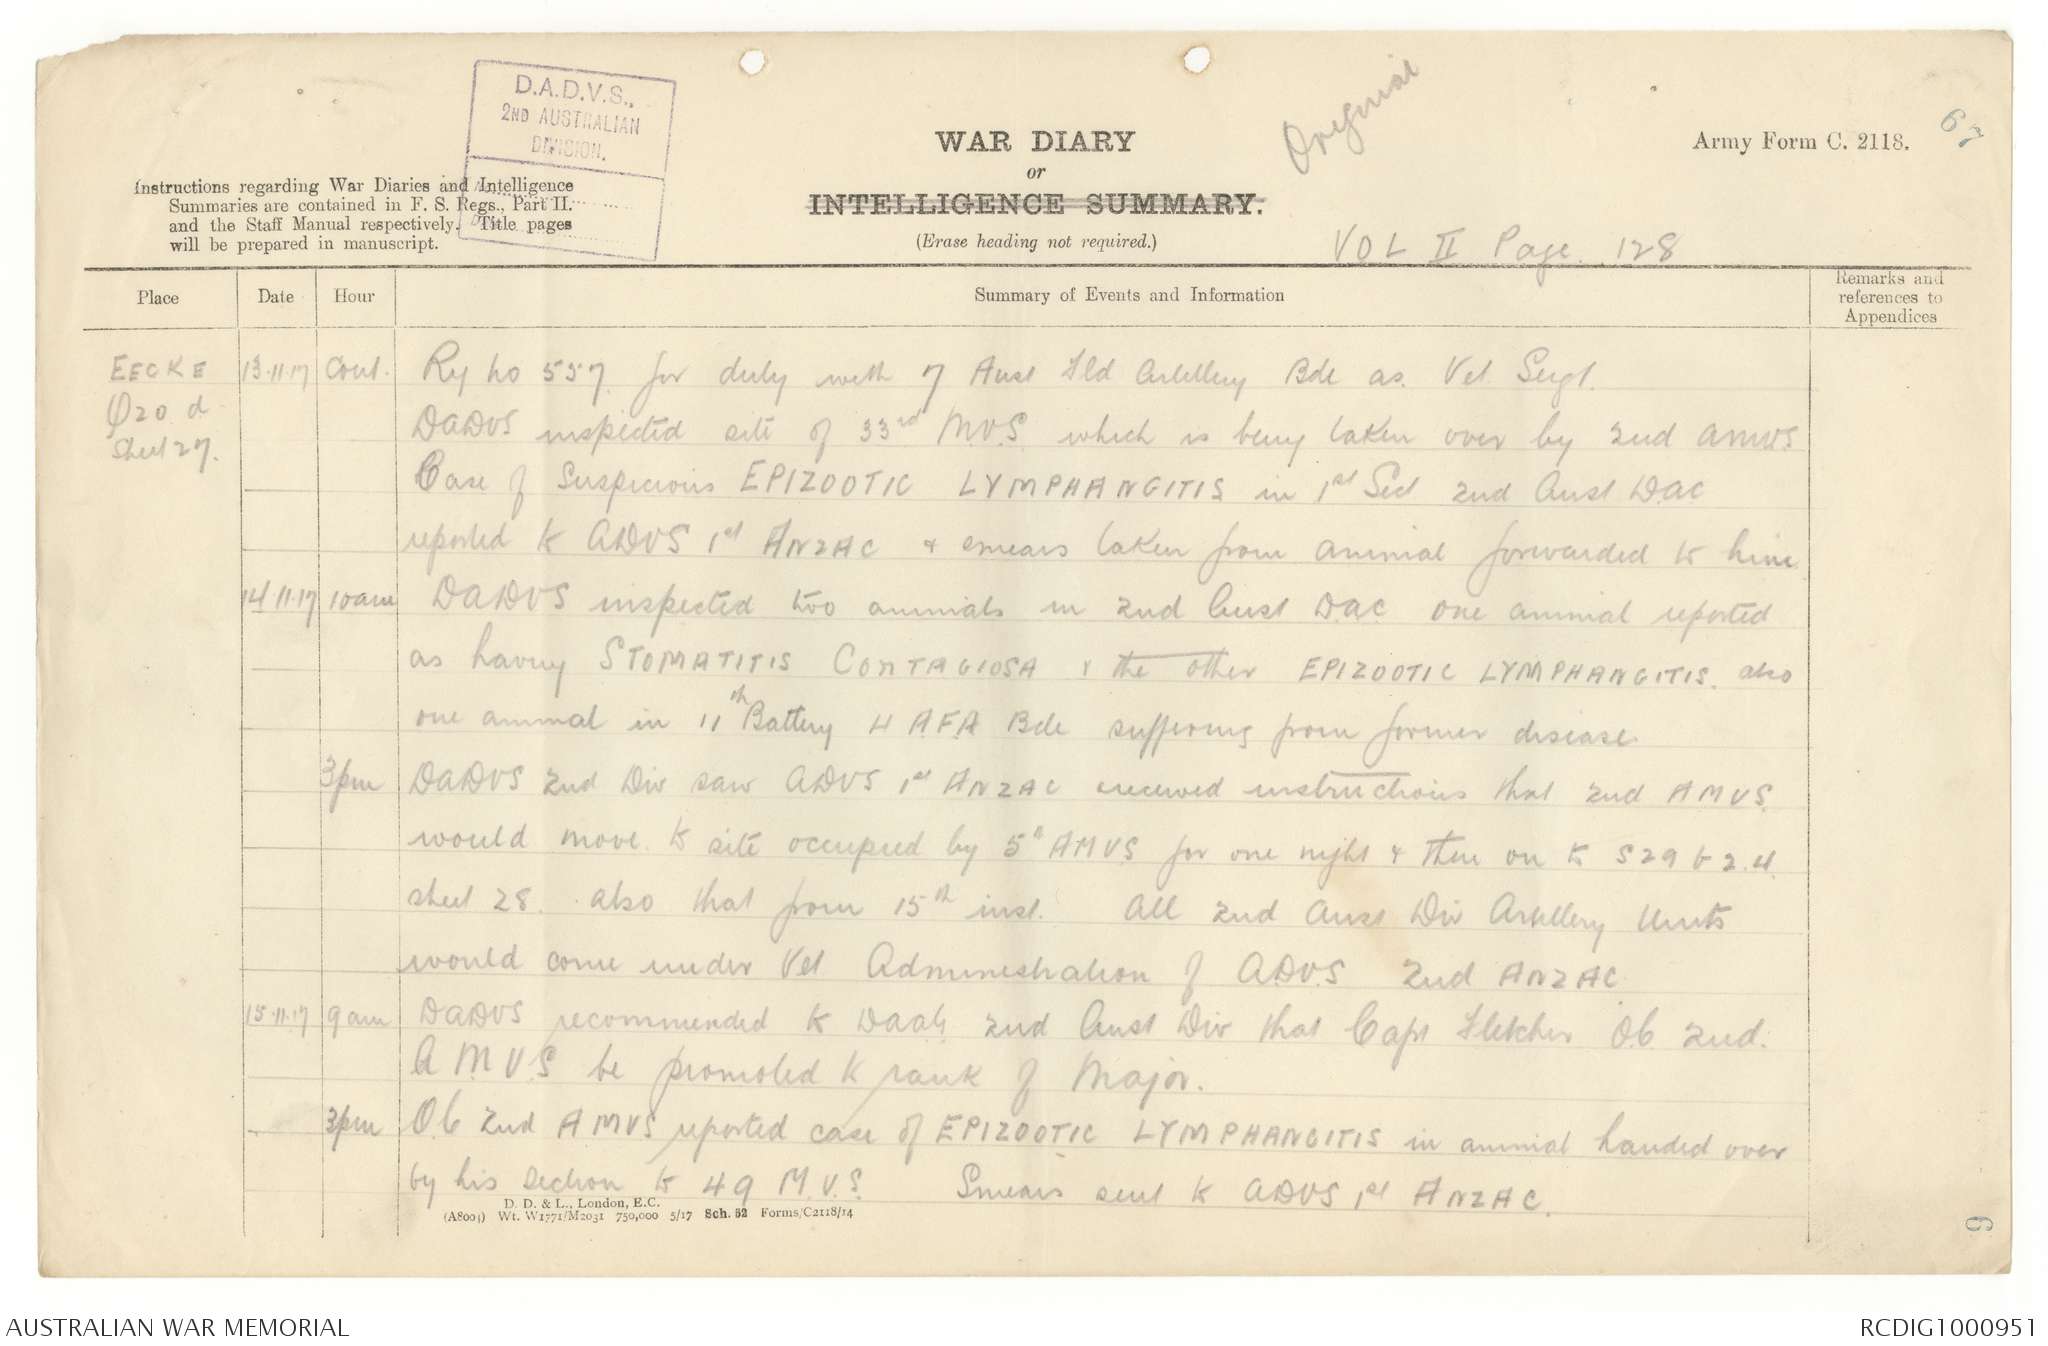 D.A.D.V.S.,
2ND AUSTRALIAN
DIVISION.
Original
WAR DIARY
or
INTELLIGENCE SUMMARY.
(Erase heading not required.)
Army Form C. 2118.
67
Instructions regarding War Diaries and Intelligence
Summaries are contained in F. S. Regs., Part II.
and the Staff Manual respectively. Title pages
will be prepared in manuscript.
VOL II Page 128
Place Date Hour Summary of Events and Information Remarks and references to Appendices
EECKE 13.11.17 Cont. Ry No 557 for duty with 7 Aust Fld Artillery Bde as Vet Sergt.
Q20 d DADVS inspected site of 33rd M.V.S. which is being taken over by 2nd AMVS.
Sheet 27. Case of Suspicious EPIZOOTIC LYMPHANGITIS in 1st Sec 2nd Aust DAC
reported to ADVS 1st ANZAC + smears taken from animal forwarded to him.
14.11.17 10am DADVS inspected two animals in 2nd Aust DAC one animal reported
as having STOMATITIS CONTAGIOSA & the other EPIZOOTIC LYMPHANGITIS. also
one animal in 11th Battery 4 AFA Bde suffering from former disease.
3pm DADVS 2nd Div saw ADVS 1st ANZAC received instructions that 2nd AMVS.
would move to site occupied by 5th AMVS for one night & then on to S29 b 2.4.
sheet 28. also that from 15th inst. All 2nd Aust Div Artillery Units
would come under Vet Administration of ADVS 2nd ANZAC.
15.11.17 9am DADVS recommended to DAAG 2nd Aust Div that Capt Fletcher O.C. 2nd.
A.M.V.S be promoted to rank of Major.
3pm O.C 2nd AMVS reported case of EPIZOOTIC LYMPHANGITIS in animal handed over
by his section to 49 M.V.S. Smears sent to ADVS 1st ANZAC.
D. D. & L., London, E.C.
(A8004) Wt. W1771/M2031 750,000 5/17 Sch. 52 Forms/C2118/14
9
AUSTRALIAN WAR MEMORIAL
RCDIG1000951